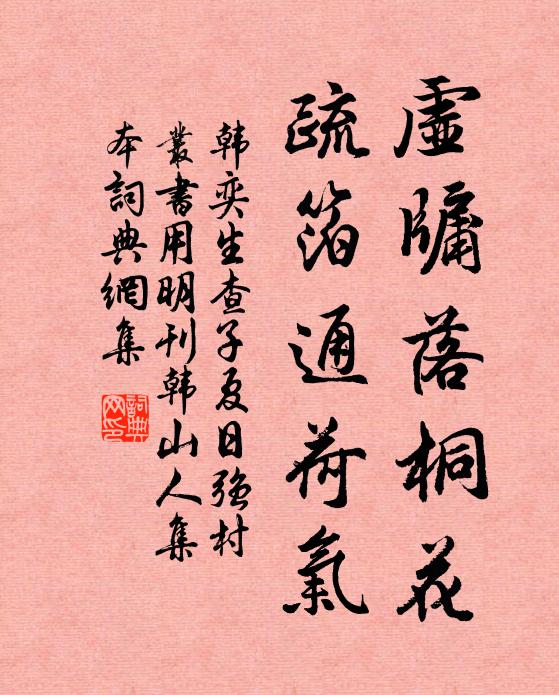 虛牖落桐花
疏箔通荷氣
韩奕生查子夏日強村
叢書用明刊韩山人集
本詞典網集
詞典网印